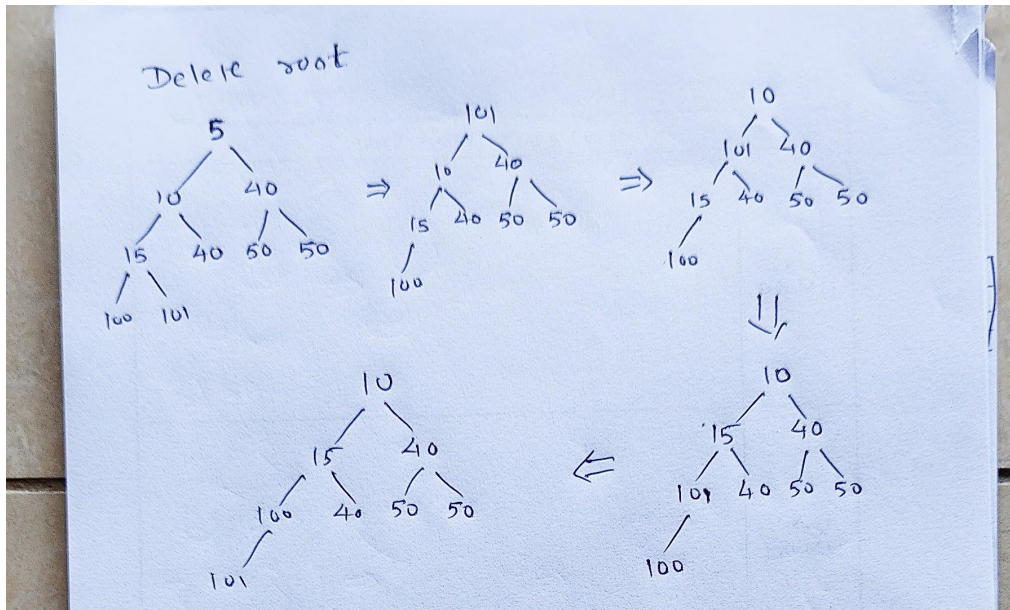 Delete root
5
10 40
15 40 50 50
100 101
⇒
101
10 40
15 40 50 50
100
⇒
10
101 40
15 40 50 50
100
⇓
10
15 40
101 40 50 50
100
⇐
10
15 40
100 40 50 50
101